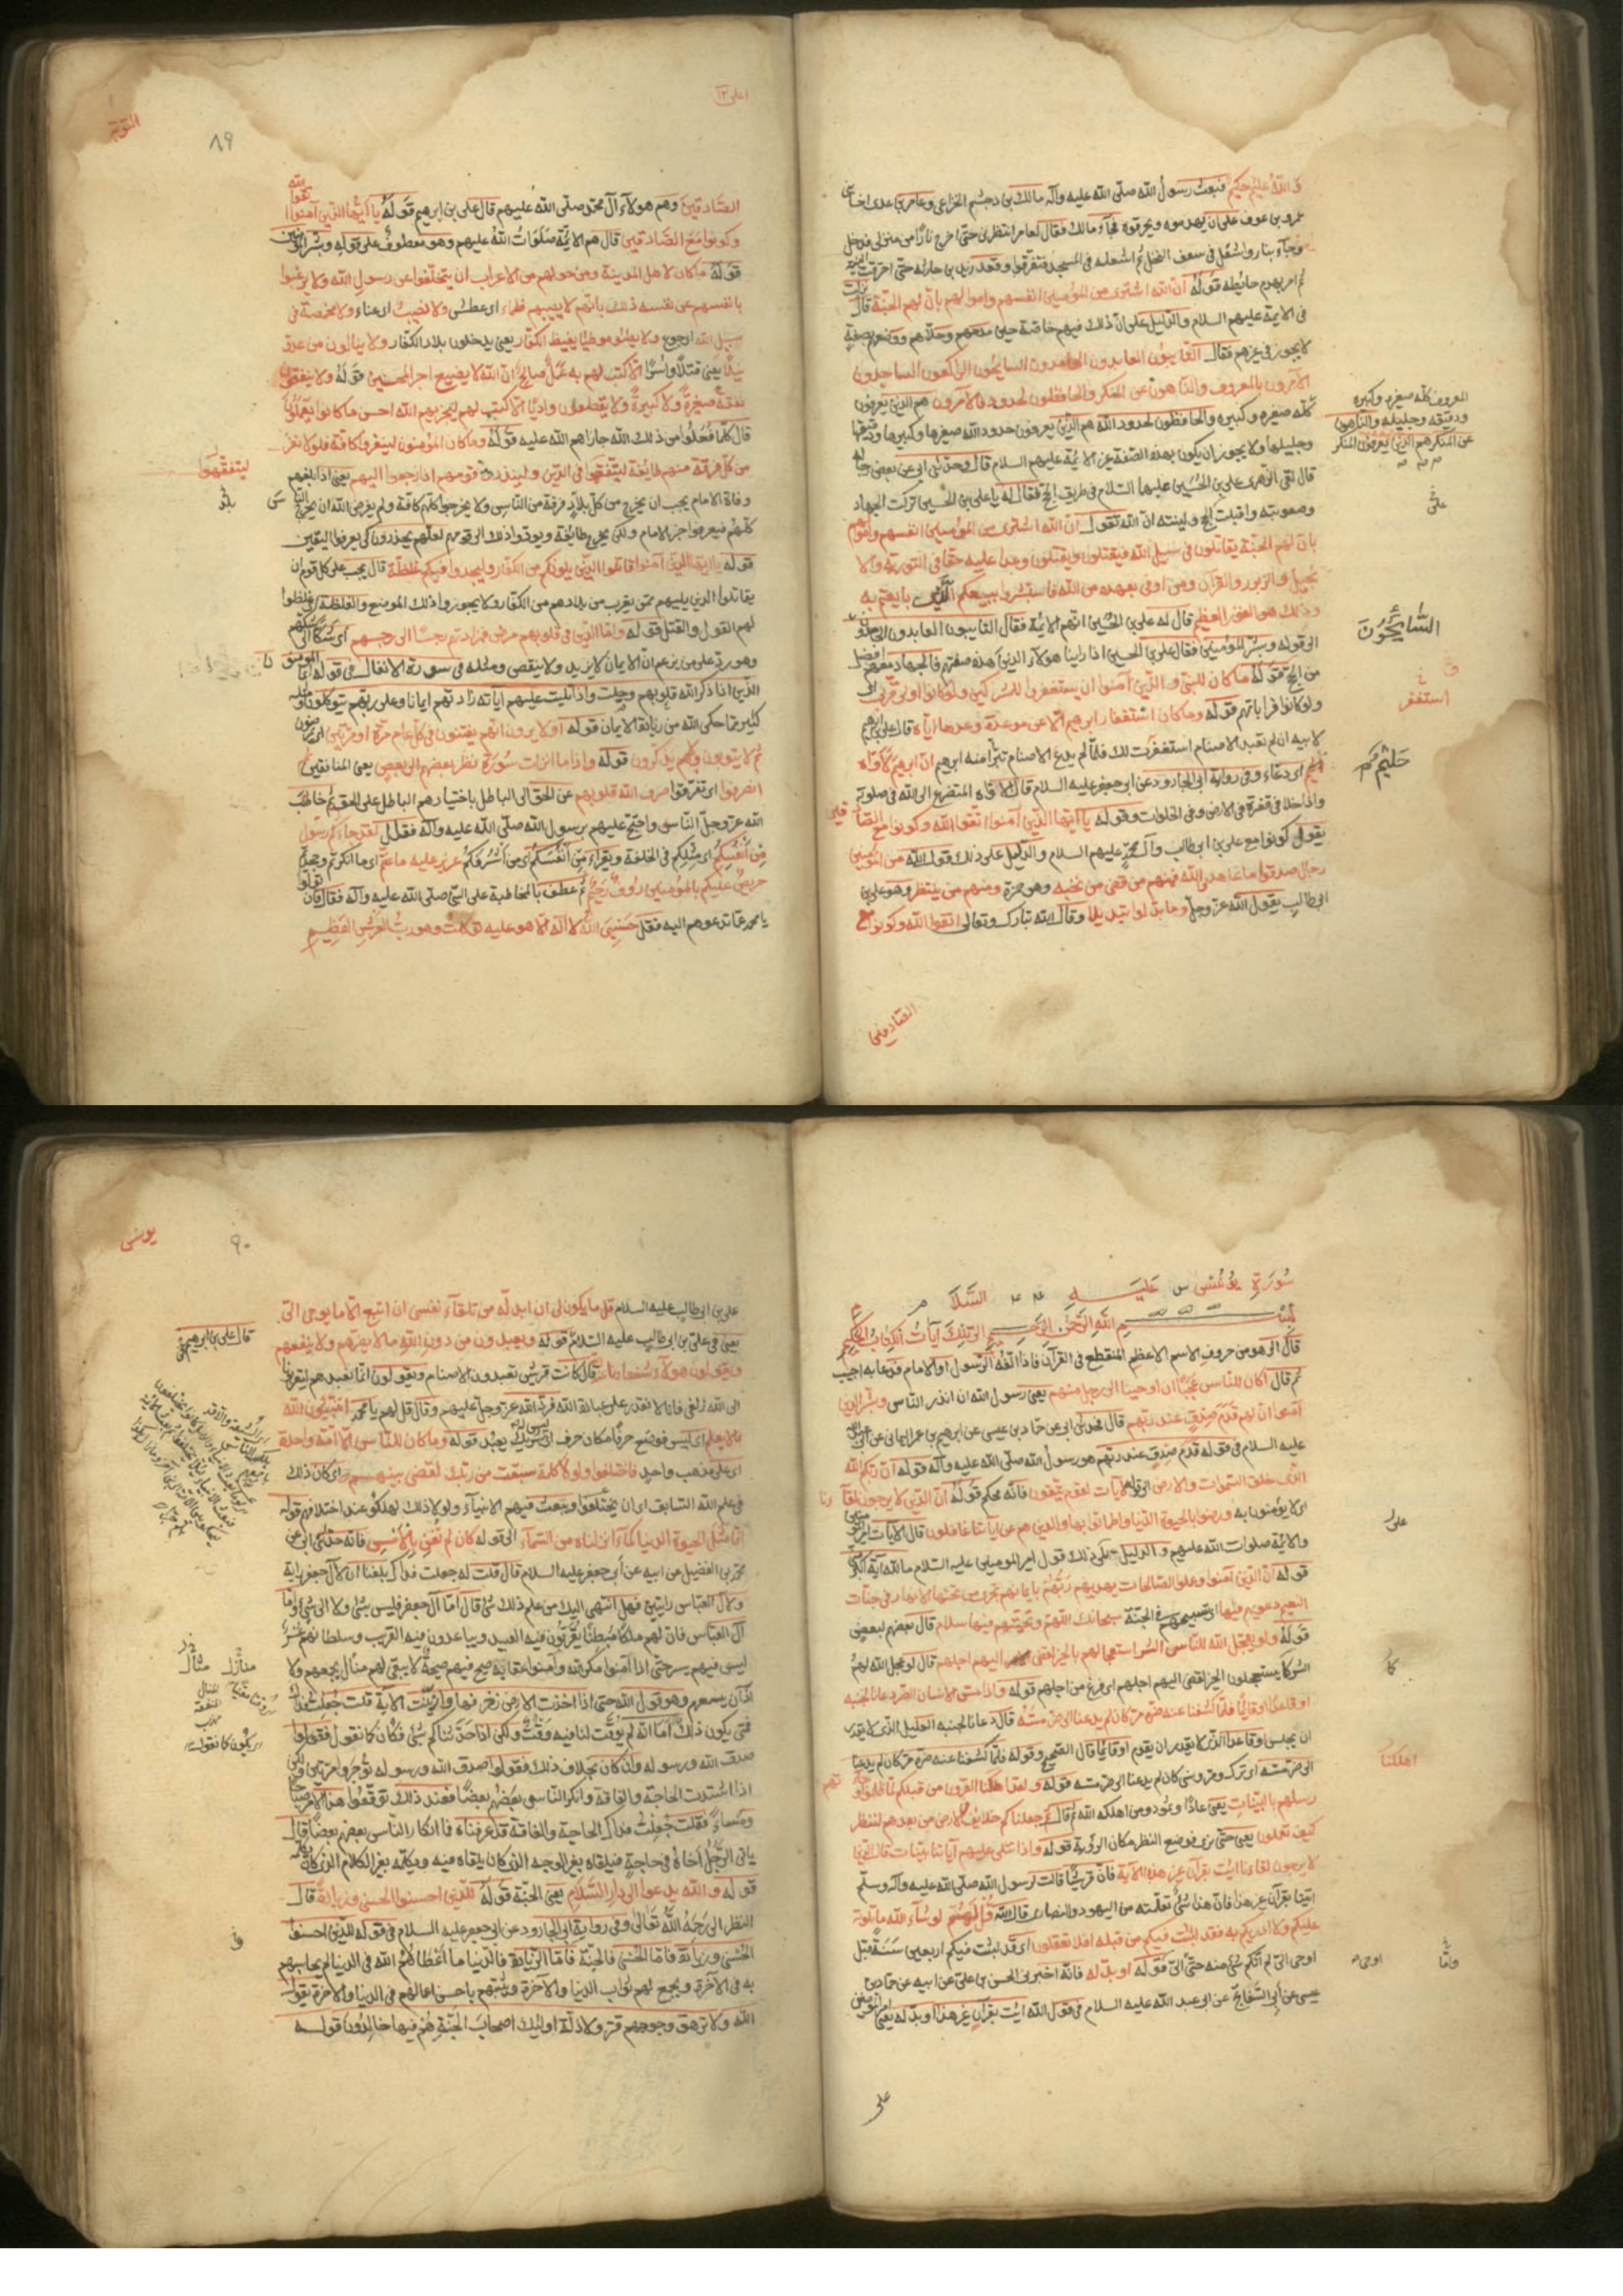 والله عليم حكيم فبعث رسول الله صلّى الله عليه وآله مالك بن دجشم الخزاعى وعامر بن عدى اخا بنى
عمرو بن عوف على ان يهدموه ويحرقوه فجآء مالك فقال لعامر انتظرنى حتّى اخرج نارًا من منزلى فدخل
وجآء بنار واشعل فى سعف النخل ثم اشعله فى المسجد فتفرقوا وقعد زيد بن حارثه حتّى احترقت البنية
ثم امر بهدم حائطه قوله انّ الله اشترى من المؤمنين انفسهم واموالهم بانّ لهم الجنّة قال نزلت
فى الائمة عليهم السلام والدّليل على انّ ذلك فيهم خاصّة حين مدحهم وحلّاهم ووصفهم بصفةٍ
لا يجوز فى غيرهم فقال التائبون العابدون الحامدون السائحون الراكعون الساجدون
الآمرون بالمعروف والناهون عن المنكر والحافظون لحدود الله فالآمرون هم الذين يعرفون
كلّه صغيره وكبيره والحافظون لحدود الله هم الذين يعرفون حدود الله صغيرها وكبيرها ودقيقها
وجليلها ولا يجوز ان يكون بهذه الصّفة غير الائمة عليهم السلام قال وحدّثنى ابى عن بعض رجاله
قال لقى الزهرى على بن الحسين عليهما السلام فى طريق الحج فقال له يا على بن الحسين تركت الجهاد
وصعوبته واقبلت الى الحج ولينته انّ الله تقول انّ الله اشترى من المؤمنين انفسهم واموالهم
بانّ لهم الجنّة يقاتلون فى سبيل الله فيقتلون ويقتلون وعدا عليه حقّا فى التورية والا
نجيل والزبور والقرآن ومن اوفى بعهده من الله فاستبشروا ببيعكم الّذى بايعتم به
وذلك هو الفوز العظيم قال له على بن الحسين انّهم الائمة فقال التائبون العابدون الحامدون
الى قوله وبشّر المؤمنين فقال على بن الحسين اذا راينا هولآء الذين هذه صفتهم فالجهاد معهم افضل
من الحج قوله ما كان للنبىّ والذين آمنوا ان يستغفروا للمشركين ولو كانوا اولى قربى اى
ولو كانوا قراباتهم قوله وما كان استغفار ابراهيم الّا عن موعدة وعدها ايّاه قال على بن ابرهيم
لابيه ان لم تعبد الاصنام استغفرت لك فلمّا لم يدع الاصنام تبرّأ منه ابرهيم انّ ابرهيم لاوّاه
حليم اى دعّاء وفى رواية ابى الجارود عن ابى جعفر عليه السلام قال الاوّاه المتضرع الى الله فى صلوته
واذا خلا فى قفرة فى الارض وفى الخلوات وقوله يا ايّها الذين آمنوا اتقوا الله وكونوا مع الصّادقين
يقول كونوا مع على بن ابى طالب وآل محمّد عليهم السلام والدّليل على ذلك قول الله من المؤمنين
رجال صدقوا ما عاهدوا الله فمنهم من قضى نحبه وهو حمزة ومنهم من ينتظر وهو على بن
ابى طالب يقول الله عزّ وجلّ وما بدّلوا تبديلا وقال الله تبارك وتعالى اتقوا الله وكونوا مع
الصّادقين
المعروف كلّه صغيره وكبيره
ودقيقه وجليله والناهون
عن المنكر هم الذين يعرفون المنكر
على
السَّائِحُونَ
استغفر
حَليمٌ
التوبة
٨٩
الصّادقين وهم هولآء آل محمّد صلّى الله عليهم قال على بن ابرهيم قوله يا ايّها الذين آمنوا اتقوا الله
وكونوا مع الصّادقين قال هم الائمّة صلوات الله عليهم وهو معطوف على قوله وبشّر المؤمنين
قوله ما كان لاهل المدينة ومن حولهم من الاعراب ان يتخلّفوا عن رسول الله ولا يرغبوا
بانفسهم عن نفسه ذلك بانّهم لا يصيبهم ظمآء اى عطش ولا نصب اى عناء ولا مخمصة فى
سبيل الله اى جوع ولا يطئون موطئًا يغيظ الكفّار يعنى يدخلون بلاد الكفّار ولا ينالون من عدوّ
نيلًا يعنى قتلًا واسرًا الّا كتب لهم به عمل صالح انّ الله لا يضيع اجر المحسنين قوله ولا ينفقون
نفقة صغيرة ولا كبيرة ولا يقطعون واديًا الّا كتب لهم ليجزيهم الله احسن ما كانوا يعملون
قال كلّما فعلوا من ذلك الله جازاهم الله عليه قوله وما كان المؤمنون لينفروا كافّة فلولا نفر
من كلّ فرقة منهم طائفة ليتفقّهوا فى الدّين ولينذروا قومهم اذا رجعوا اليهم يعنى اذا بلغهم
وفاة الامام يجب ان يخرج من كلّ بلاد فرقة من الناس ولا يخرجوا كلّهم كافة ولم يفرض الله ان يخرج الناس
كلّهم فيعرفوا خبر الامام ولكن يخرج طائفة ويؤدّوا ذلك الى قومهم لعلّهم يحذرون كى يعرفوا اليقين
قوله يا ايّها الذين آمنوا قاتلوا الذين يلونكم من الكفّار وليجدوا فيكم غلظة قال يجب على كل قوم ان
يقاتلوا الذين يليهم ممّن يقرب من بلادهم من الكفار ولا يجوزوا ذلك الموضع والغلظة اى غلظوا
لهم القول والقتل قوله وامّا الذين فى قلوبهم مرض فزادتهم رجسًا الى رجسهم اى شكًا الى شكهم
وهو ردّ على من يزعم انّ الايمان لا يزيد ولا ينقص ومثله فى سورة الانفال فى قوله انّما المؤمنون
الذين اذا ذكر الله وجلت قلوبهم واذا تليت عليهم آياته زادتهم ايمانا وعلى ربّهم يتوكلون ومثله
كثير ممّا حكى الله من زيادة الايمان قوله اولا يرون انّهم يفتنون فى كلّ عام مرّة او مرّتين اى يمرضون
ثم لا يتوبون ولا هم يذكرون قوله واذا ما انزلت سورة نظر بعضهم الى بعض يعنى المنافقين ثم
انصرفوا اى تفرّقوا صرف الله قلوبهم عن الحق الى الباطل باختيارهم الباطل على الحق ثم خاطب
الله عزّ وجلّ الناس واحتجّ عليهم برسول الله صلّى الله عليه وآله فقال لقد جاءكم رسول
من انفسكم اى مثلكم فى الخلقة ويقرأ من انفسكم اى من اشرفكم عزيز عليه ما عنتّم اى ما انكرتم وجحدتم
حريص عليكم بالمؤمنين رؤوف رحيم ثم عطف بالمخاطبة على النبىّ صلّى الله عليه وآله فقال فان تولّوا
يا محمّد عمّا تدعوهم اليه فقل حسبى الله لا اله الّا هو عليه توكلت وهو ربّ العرش العظيم
ليتفقّهوا
سورة يونس عليه السّلام
بسم الله الرّحمن الرّحيم الر تلك آيات الكتاب الحكيم
قال الر هو من حروف الاسم الاعظم المنقطع فى القرآن فاذا الّفه الرّسول او الامام فدعا به اجيب
ثم قال أكان للناس عجبًا ان اوحينا الى رجل منهم يعنى رسول الله ان انذر الناس وبشّر الذين
آمنوا انّ لهم قدم صدق عند ربّهم قال فحدّثنى ابى عن حمّاد بن عيسى عن ابرهيم بن عمر اليمانى عن ابى عبد الله
عليه السلام فى قوله قدم صدق عند ربّهم هو رسول الله صلّى الله عليه وآله قوله انّ ربّكم الله
الذى خلق السّموات والارض الى قوله لآيات لقوم يتّقون فانّه محكم قوله انّ الذين لا يرجون لقآءنا
اى لا يؤمنون به ورضوا بالحيوة الدّنيا واطمانّوا بها والذين هم عن آياتنا غافلون قال الآيات امير المؤمنين
والائمة صلوات الله عليهم والدليل على ذلك قول امير المومنين عليه السّلام ما لله آية اكبر منّى
قوله انّ الذين آمنوا وعملوا الصّالحات يهديهم ربّهم بايمانهم تجرى من تحتها الانهار فى جنّات
النعيم دعويهم فيها اى تسبيحهم فى الجنّة سبحانك اللهمّ وتحيّتهم فيها سلام قال بعضهم لبعض
قوله ولو يعجّل الله للناس الشّر استعجالهم بالخير لقضى اليهم اجلهم قال لو عجّل الله لهم
الشّر كما يستعجلون الخير لقضى اليهم اجلهم اى فرغ من اجلهم قوله واذا مسّ الانسان الضّر دعانا لجنبه
او قاعدًا او قائمًا فلمّا كشفنا عنه ضرّه مرّ كان لم يدعنا الى ضرّ مسّه قال دعانا لجنبه العليل الذى لا يقدر
ان يجلس او قاعدًا الذى لا يقدر ان يقوم او قائمًا قال الصّحيح وقوله فلمّا كشفنا عنه ضرّه مرّ كان لم يدعنا
الى ضرّ مسّه اى ترك ومرّ ونسى كان لم يدعنا الى ضرّ مسّه قوله ولقد اهلكنا القرون من قبلكم لمّا ظلموا وجاءتهم
رسلهم بالبيّنات يعنى عادًا وثمود ومن اهلكه الله ثم قال ثم جعلناكم خلائف فى الارض من بعدهم لننظر
كيف تعملون يعنى حتّى نرى فوضع النظر مكان الرؤية قوله واذا تتلى عليهم آياتنا بيّنات قال الذين
لا يرجون لقاءنا ائت بقرآن غير هذا الآية فانّ قريشًا قالت لرسول الله صلّى الله عليه وآله وسلّم
ائتنا بقرآن غير هذا فانّ هذا شىء تعلّمته من اليهود والنصارى قال الله قل لهم لو شآء الله ما تلوته
عليكم ولا ادريكم به فقد لبثت فيكم من قبله افلا تعقلون اى قد لبثت فيكم اربعين سنة قبل
اوحى الىّ لم آتكم بشىء منه حتّى اُوحى الىّ قوله او بدّله فانّه اخبرنى الحسن بن على عن ابيه عن حمّاد بن
عيسى عن ابى السّفاتج عن ابى عبد الله عليه السلام فى قول الله ائت بقرآن غير هذا او بدّله يعنى امير المؤمنين
على
اهلكنا
يونس
٩٠
على بن ابى طالب عليه السلام قل ما يكون لى ان ابدّله من تلقآء نفسى ان اتّبع الّا ما يوحى الىّ
يعنى فى على بن ابى طالب عليه السلام قوله ويعبدون من دون الله ما لا يضرّهم ولا ينفعهم
ويقولون هولآء شفعاؤنا قال كانت قريش تعبدون الاصنام ويقولون انّما نعبدهم ليقربونا
الى الله زلفى فانّا لا نقدر على عبادة الله فردّ الله عزّ وجلّ عليهم وقال قل لهم يا محمّد اتنبّئون الله
بما لا يعلم اى ليس فوضع حرفًا مكان حرف اى ليس له شريك يعبد قوله وما كان للناس الّا امّة واحدة
اى على مذهب واحد فاختلفوا ولولا كلمة سبقت من ربّك لقضى بينهم اى كان ذلك
فى علم الله السّابق ان يختلفوا ويبعث فيهم الانبيآء ولولا ذلك لهلكوا عند اختلافهم قوله
انّما مثل الحيوة الدنيا كمآء انزلناه من السّمآء الى قوله كان لم تغن بالامس فانّه حدّثنى ابى عن
محمّد بن الفضيل عن ابيه عن ابى جعفر عليه السلام قال قلت له جعلت فداك بلغنا ان لآل جعفر راية
ولآل العبّاس رايتين فهل انتهى اليك من علم ذلك شىء قال امّا آل جعفر فليس بشىء ولا الى شىء وامّا
آل العبّاس فانّ لهم ملكًا مبطئًا يقرّبون فيه البعيد ويباعدون فيه القريب وسلطانهم عسر
ليس فيهم يسر حتّى اذا آمنوا مكر الله وآمنوا عقابه صيح فيهم صيحة لا يبقى لهم منال يجمعهم ولا
آذان يسمعهم وهو قول الله حتى اذا اخذت الارض زخرفها وازّيّنت الآية قلت جعلت فداك
فمتى يكون ذلك قال اما انّه لم يوقّت لنا فيه وقت ولكن اذا حدّثناكم بشىء فكان كما نقول فقولوا
صدق الله ورسوله وان كان بخلاف ذلك فقولوا صدق الله ورسوله تؤجروا مرّتين ولكن
اذا اشتدت الحاجة والفاقة وانكر الناس بعضهم بعضًا فعند ذلك توقّعوا هذا الامر صباحًا
ومسآءً فقلت جعلت فداك الحاجة والفاقة قد عرفناه فما انكار النّاس بعضهم بعضًا قال
ياتى الرّجل اخاه فى حاجة فيلقاه بغير الوجه الذى كان يلقاه فيه ويكلّمه بغير الكلام الذى كان يكلّمه
قوله والله يدعوا الى دار السّلام يعنى الجنّة قوله للذين احسنوا الحسنى وزيادة قال
النظر الى رحمة الله تعالى وفى رواية ابى الجارود عن ابى جعفر عليه السلام فى قوله للذين احسنوا
الحسنى وزيادة فامّا الحسنى فالجنّة فامّا الزّيادة فالدّنيا ما اعطاهم الله فى الدنيا لم يحاسبهم
به فى الآخرة ويجمع لهم ثواب الدنيا والآخرة ويثيبهم باحسن اعمالهم فى الدنيا والآخرة يقول
الله ولا يرهق وجوههم قتر ولا ذلّة اولئك اصحاب الجنّة هم فيها خالدون قوله
قال على بن ابرهيم